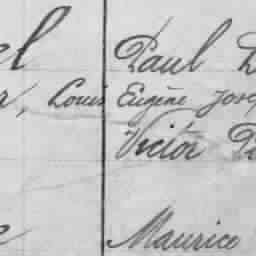 el Paul
r, Louis Eugène Jose
Victor
e Maurice